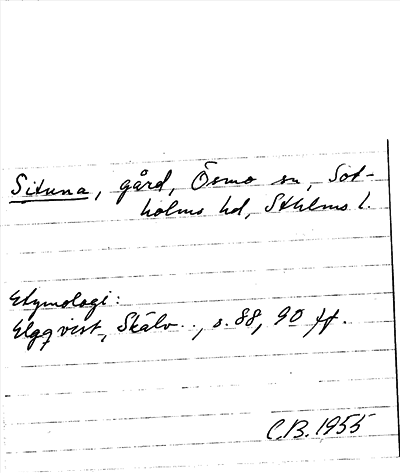 Situna, gård, Ösmo sn, Sot-
holms hd, Sthlms l.
Etymologi:
Elgqvist, Skälv.., s. 88, 90 ff.
C.B. 1955